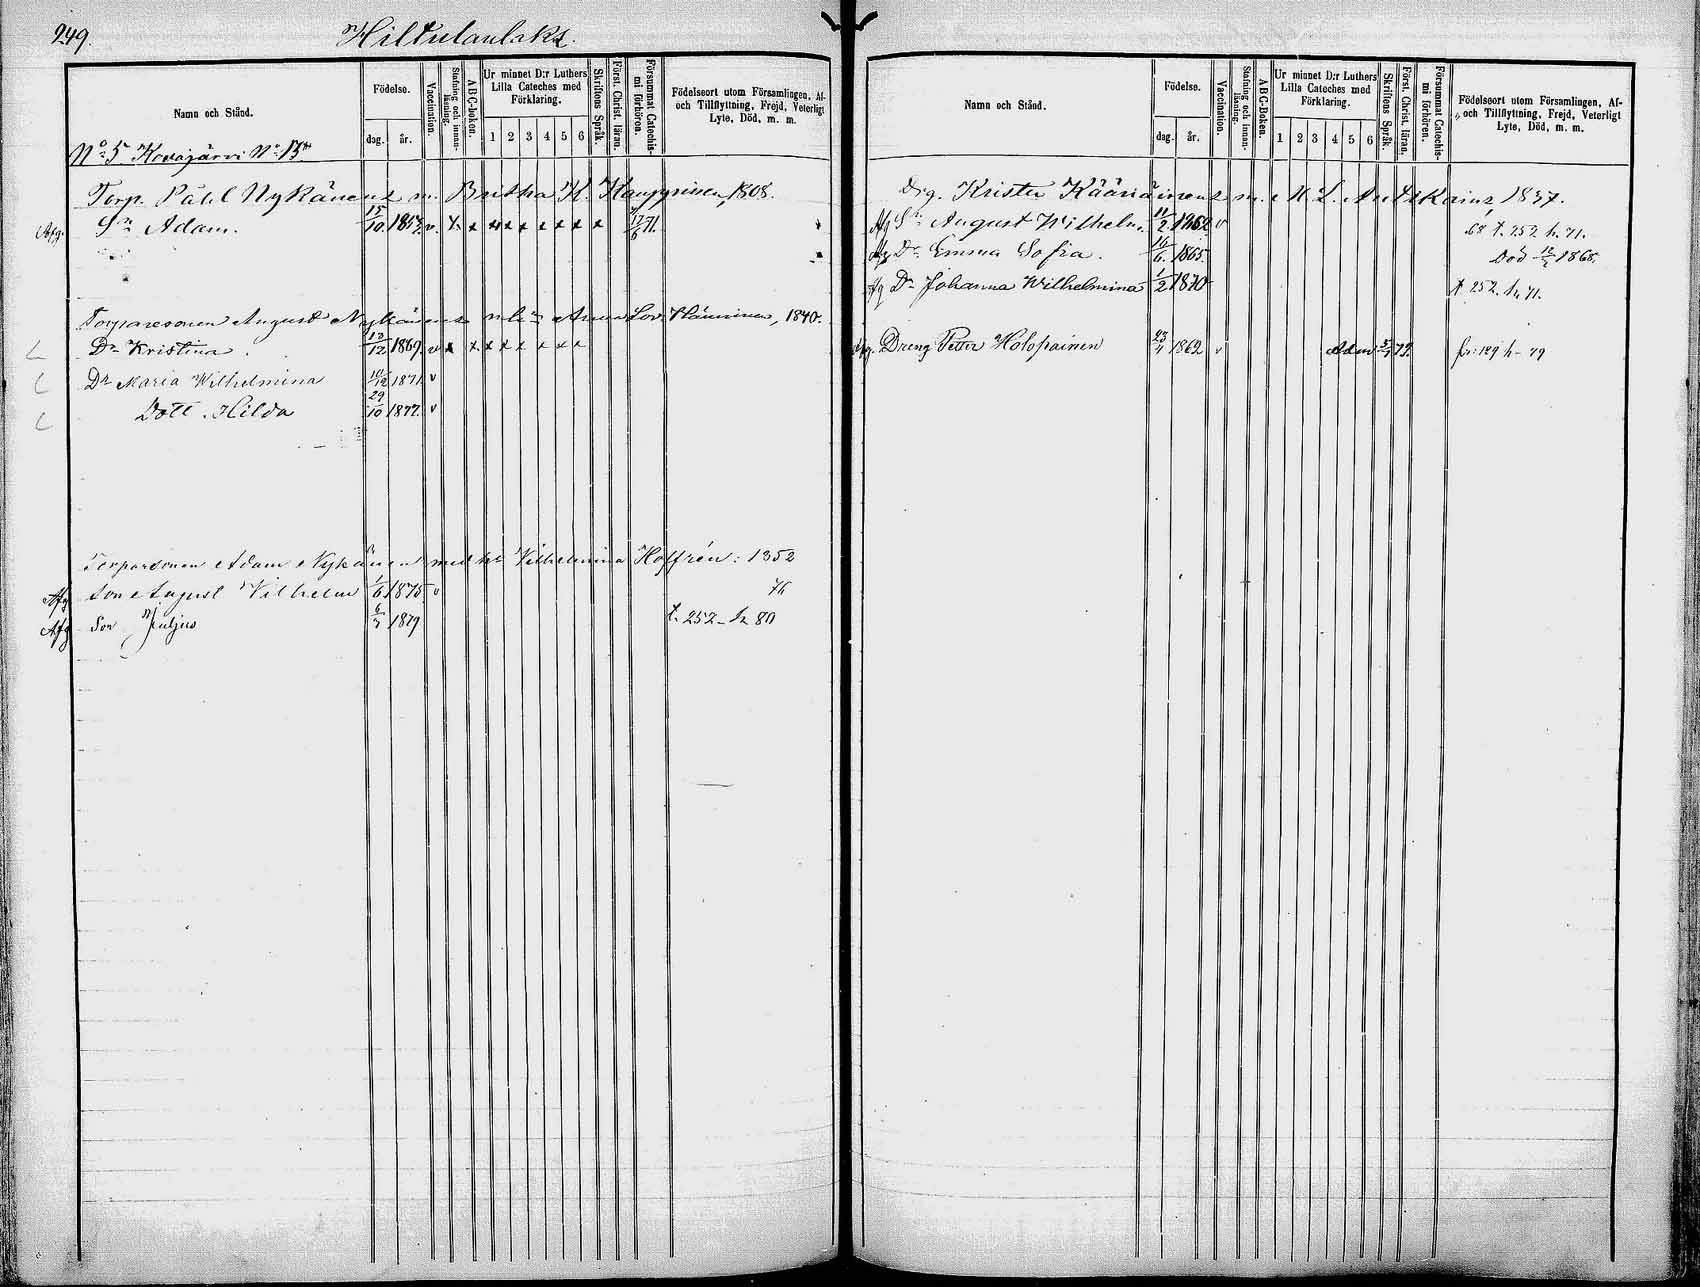 249.
Hiltulanlaks.
Namn och Stånd.
Födelse.
dag. år.
Vaccination.
Stafning och innanläsning.
A B C-Boken.
Ur minnet D:r Luthers Lilla Cateches med Förklaring.
1 2 3 4 5 6
Skriftens Språk.
Först. Christ. läran.
Försummat Catechismi förhören.
Födelseort utom Församlingen, Af- och Tillflyttning, Frejd, Veterligt Lyte, Död, m. m.
No 5 Kovajärvi No 15
Torp. Påhl Nykänens m. Britha K. Kauppinen, 1808.
Afg. Sn Adam. 10. v. x x x x x x x x x 17/6 71.
Torparesonen August Nykänens Anna Lov. Hänninen, 1840.
Dr Kristina. 13/12 1869. v x x x x x x x x
Dr Maria Wilhelmina 10/12 1871. v
Dott. Hilda 29/10 1877. v
Torparsonen Adam Nykänen med h. Vilhelmina Hoffrén: 1852
Afg Son August Vilhelm 1/6 1875. v 76
Afg Son Juljus 6/7 1879 t. 252 h 80
Namn och Stånd.
Födelse.
dag. år.
Vaccination.
Stafning och innanläsning.
A B C-Boken.
Ur minnet D:r Luthers Lilla Cateches med Förklaring.
1 2 3 4 5 6
Skriftens Språk.
Först. Christ. läran.
Försummat Catechismi förhören.
Födelseort utom Församlingen, Af- och Tillflyttning, Frejd, Veterligt Lyte, Död, m. m.
Drg. Krister Kääriäinens m. M. L. Antikainz, 1837.
Afg Sn August Wilhelm. 11/2 1862 v 68 t. 252 h. 71.
Afg Dr Emma Sofia. 16/6. 1865. Död 12/2 1868.
Afg Dr Johanna Wilhelmina 1/2 1870 t 252. h 71.
Dreng Petter Holopainen 23/4 1862 v Adm 5/7 79. fr: 129 h - 79